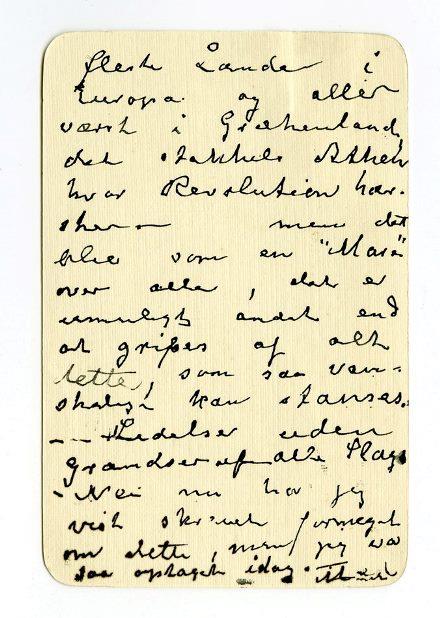 fleste Lande i
Europa og aller
værst i Grækenland,
det stakkels Athen
hvor Revolution her-
sker — men det
blir som en "Mare"
over alle, det er
umuligt andet end
at gribes af alt
dette, som saa van-
skeligt kan stanses.
— Lidelser uden
Grændser af alle Slags
- Nei nu har jeg
vist skrevet formeget
om dette, men jeg var
saa optaget idag.